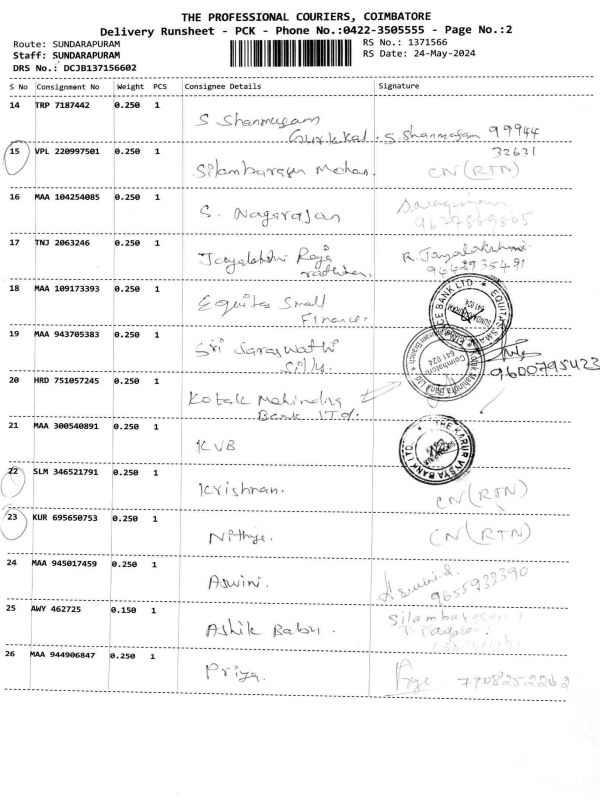 THE PROFESSIONAL COURIERS, COIMBATORE
Delivery Runsheet - PCK - Phone No.:0422-3505555 - Page No.:2
Route: SUNDARAPURAM RS No.: 1371566
Staff: SUNDARAPURAM RS Date: 24-May-2024
DRS No.: DCJB137156602
S No Consignment No Weight PCS Consignee Details Signature
14 TRP 7187442 0.250 1 S Shanmugam
Gurukkal. S. Shanmugam 99944
32631
15 VPL 220997501 0.250 1 Silambarasan Mohan. CN (RTN)
16 MAA 104254085 0.250 1 S. Nagarajan
17 TNJ 2063246 0.250 1 Jayalakshmi Raja R. Jayalakshmi
9662935491
18 MAA 109173393 0.250 1 Equitas Small
Finance.
19 MAA 943705383 0.250 1 Sri Saraswathi
9600795423
20 HRD 751057245 0.250 1 Kotak Mahindra
Bank LTd.
21 MAA 300540891 0.250 1 KVB
THE KARUR VYSYA BANK LTD.
22 SLM 346521791 0.250 1 Krishnan. CN (RTN)
23 KUR 695650753 0.250 1 Nithya. CN (RTN)
24 MAA 945017459 0.250 1 Aswini. Aswini.
9655933390
25 AWY 462725 0.150 1 Ashik Babu. Silambarasan
26 MAA 944906847 0.250 1 Priya. 7708252202